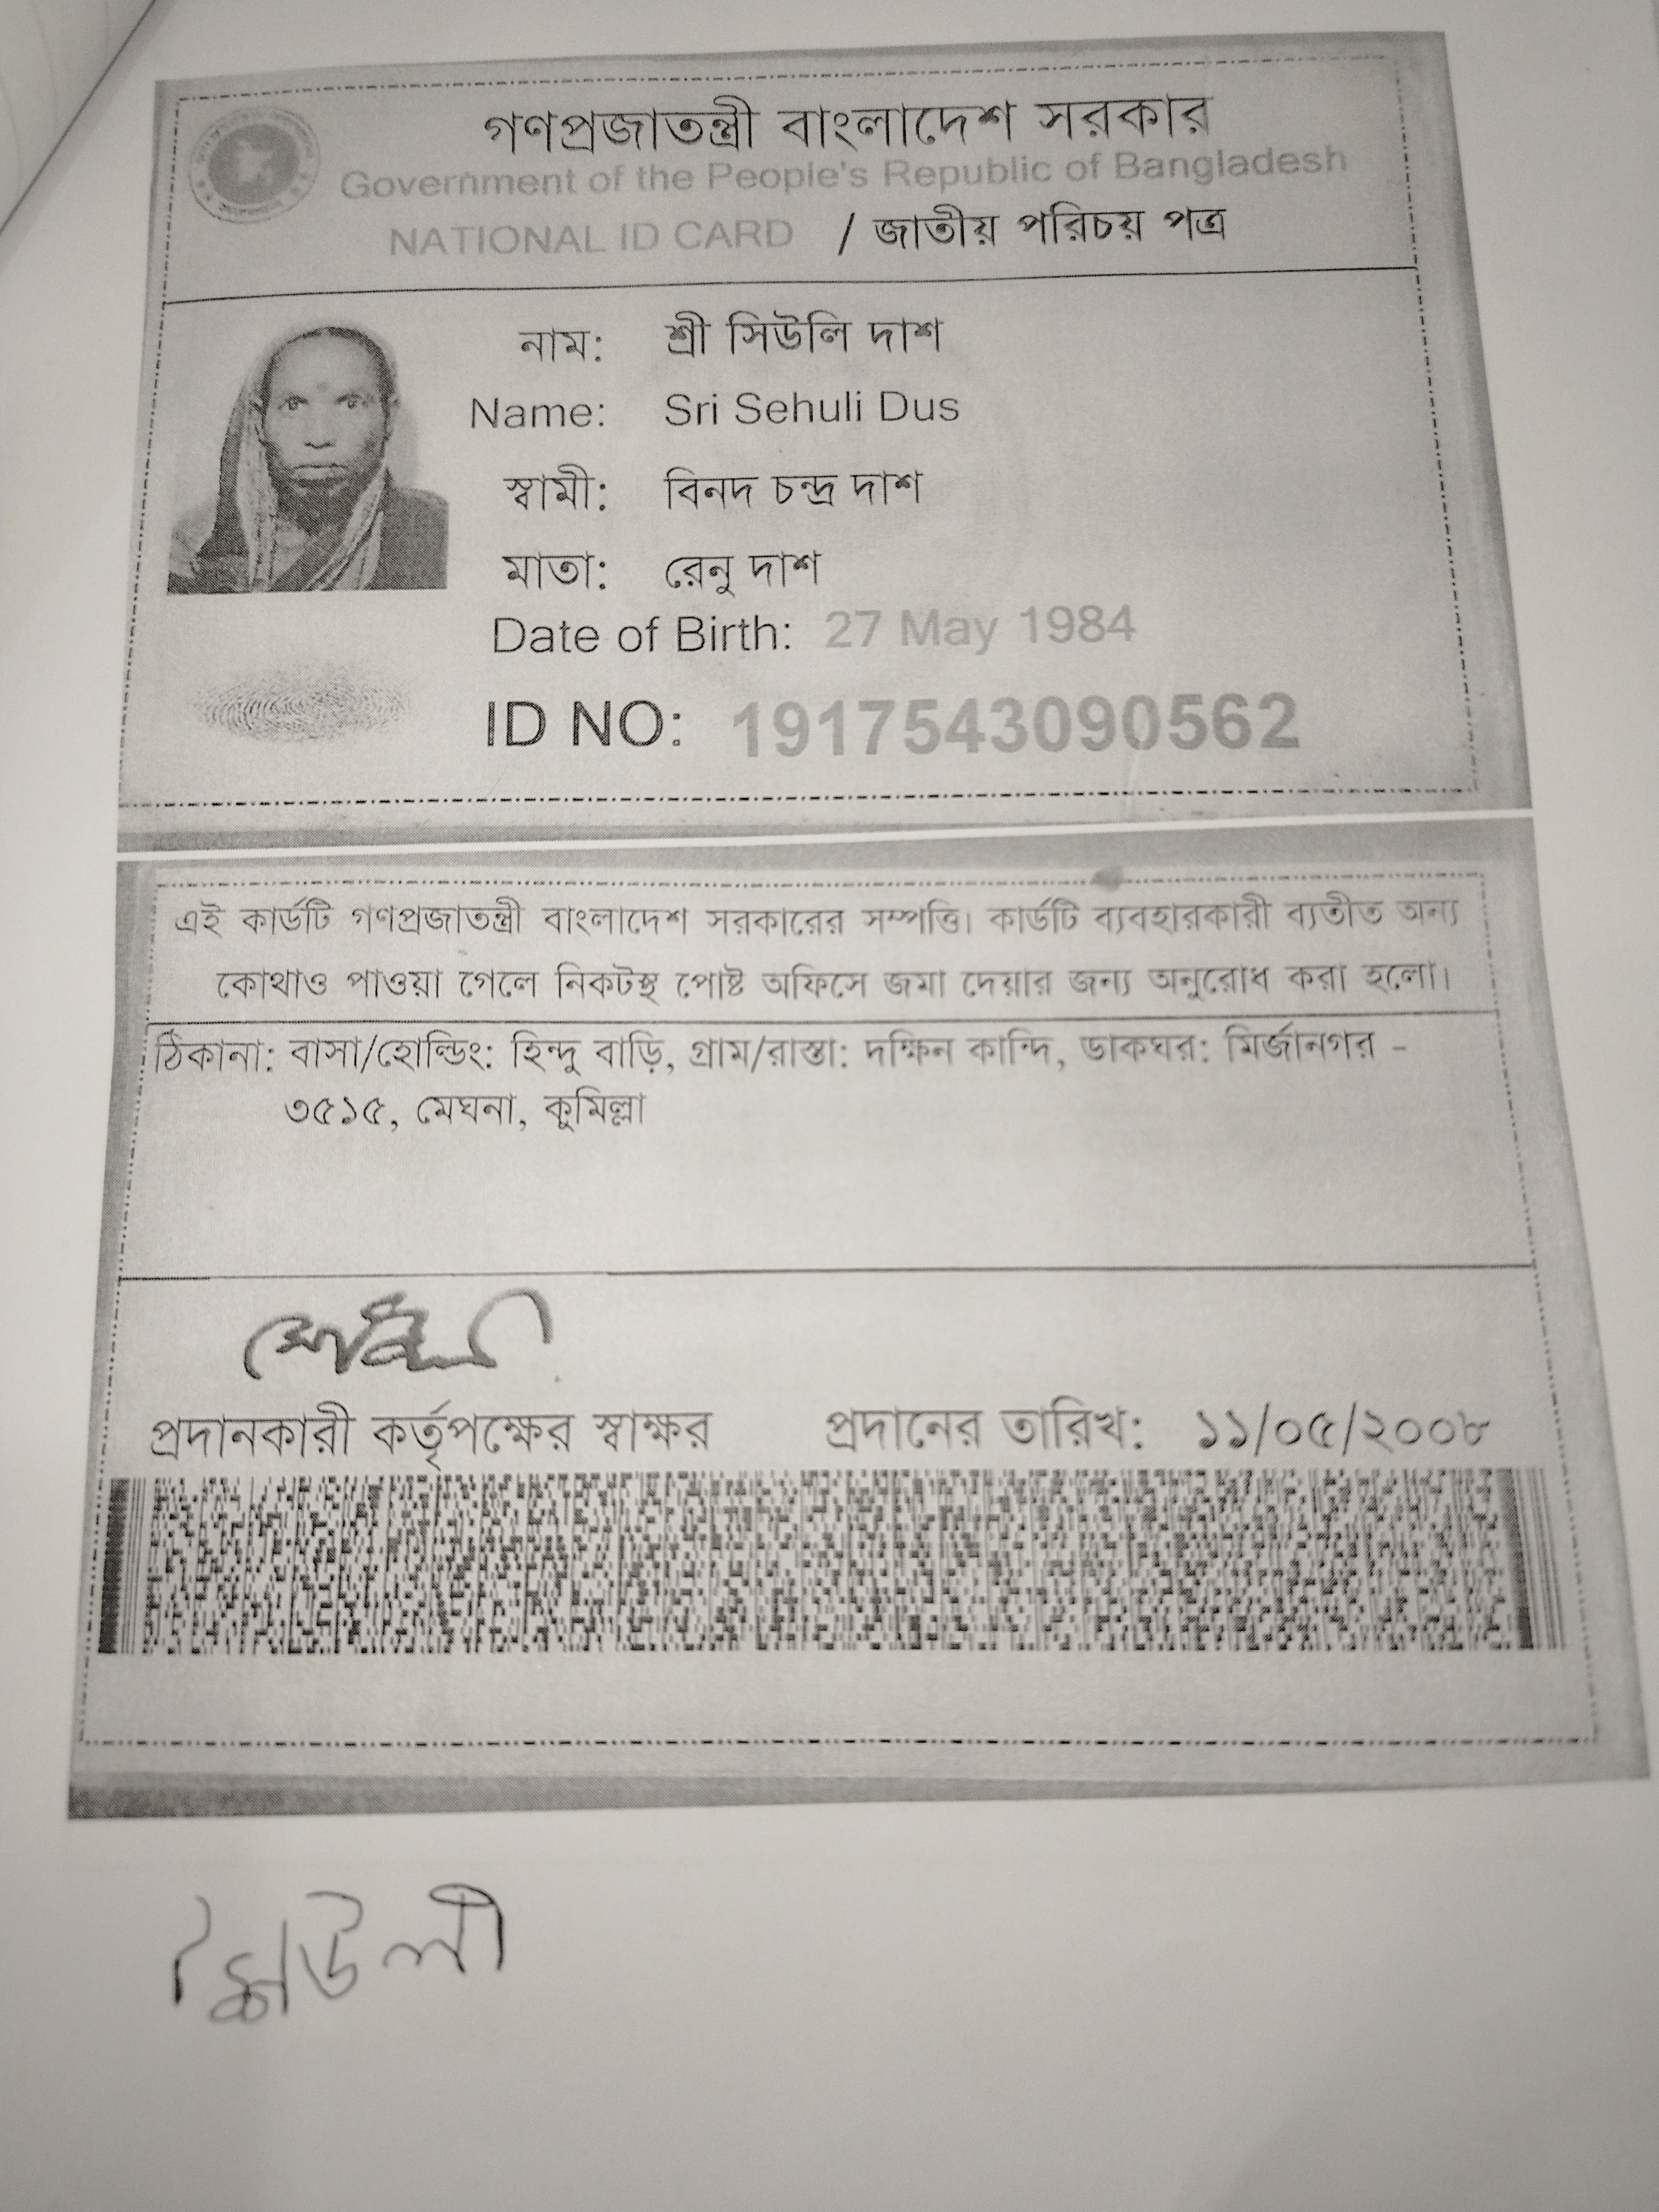 গণপ্রজাতন্ত্রী বাংলাদেশ সরকার
Government of the People's Republic of Bangladesh
NATIONAL ID CARD / জাতীয় পরিচয় পত্র
নাম: শ্রী সিউলি দাশ
Name: Sri Sehuli Dus
স্বামী: বিনদ চন্দ্র দাশ
মাতা: রেনু দাশ
Date of Birth: 27 May 1984
ID NO: 1917543090562
এই কার্ডটি গণপ্রজাতন্ত্রী বাংলাদেশ সরকারের সম্পত্তি। কার্ডটি ব্যবহারকারী ব্যতীত অন্য
কোথাও পাওয়া গেলে নিকটস্থ পোষ্ট অফিসে জমা দেয়ার জন্য অনুরোধ করা হলো।
ঠিকানা: বাসা/হোল্ডিং: হিন্দু বাড়ি, গ্রাম/রাস্তা: দক্ষিন কান্দি, ডাকঘর: মির্জানগর -
৩৫১৫, মেঘনা, কুমিল্লা
প্রদানকারী কর্তৃপক্ষের স্বাক্ষর প্রদানের তারিখ: ১১/০৫/২০০৮